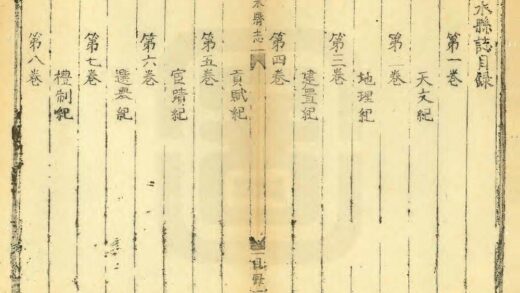 水縣誌目録
第一卷
天文紀
第二卷
地理紀
第三卷
建置紀
第四卷
水縣志
目録
貢賦紀
第五卷
官蹟紀
第六卷
選舉紀
第七卷
禮制紀
第八卷